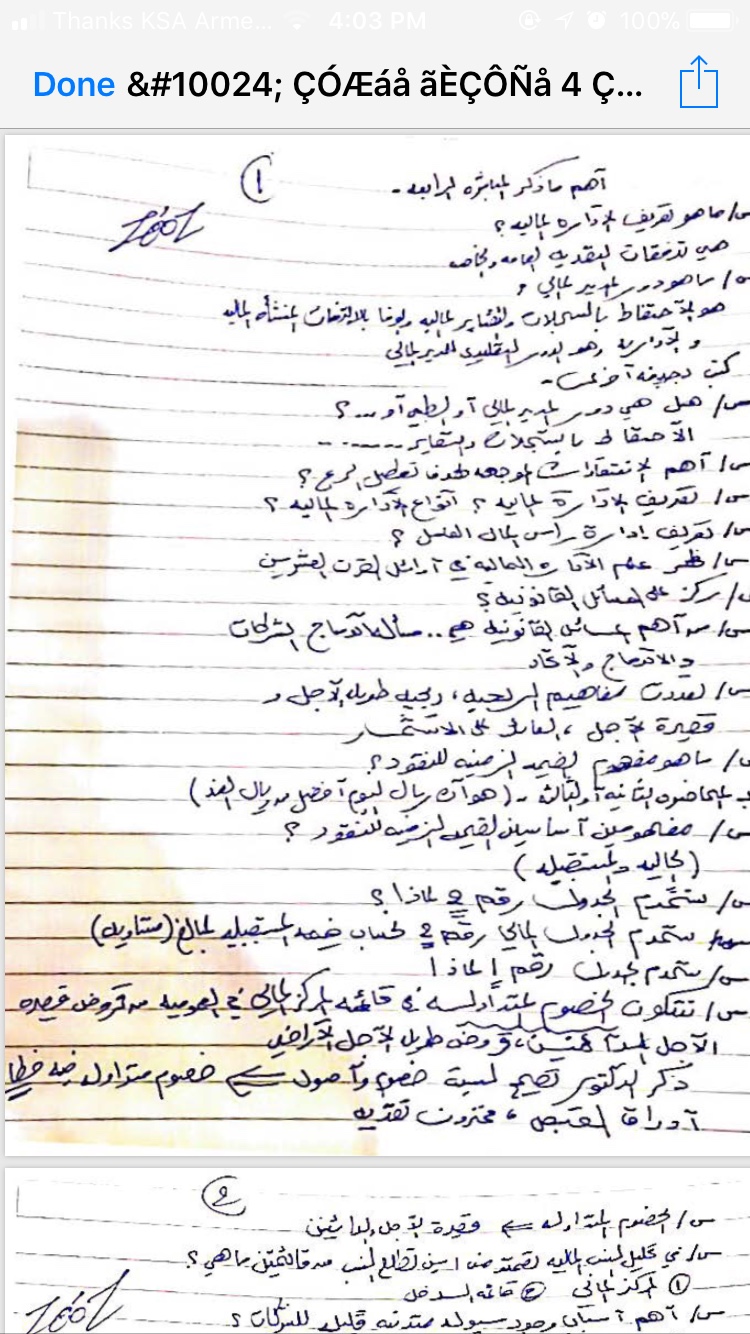 Thanks KSA Arme... 4:03 PM 100%
Done &#10024; ÇÓÆáå ãÈÇÔÑå 4 Ç...
١
أهم ما ذكر المباشره الرابعه -
س/ ما هو تعريف الإداره الماليه؟
هي تدفقات النقديه العامه والخاصه
س/ ما هو دور المدير المالي ؟
هو الاحتفاظ بالسجلات والتقارير الماليه والوفا بالالتزمات المنشأه الماليه
والإداريه وهو الدور التقليدي للمدير المالي
س/ هل هي دور المدير المالي أو
الأحتفاظ بالسجلات والتقارير
س/ أهم الإنتقادات الموجهه لهدف تعظيم الربح؟
س/ تعريف الإدارة الماليه ؟ أنواع الإداره الماليه ؟
س/ تعريف إدارة رأس المال العامل ؟
س/ ظهر علم الأداره الماليه في أوائل القرن العشرين
س/ ركز على المسائل القانونيه؟
س/ من أهم المسائل القانونيه هي.. مسألة اندماج الشركات
والاندماج والاتحاد
س/ تعددت مفاهيم الربحيه، ربحيه طويله الأجل و
قصيرة الأجل ، العائد على الاستثمار
س/ ما هو مفهوم القيمه الزمنيه للنقود؟
المحاضره الثانيه أو الثالثه - (هو أن ريال اليوم أفضل من ريال الغد)
س/ مفهومين أساسين القيمه الزمنيه للنقود ؟
(الحاليه والمستقبليه)
س/ ستخدم الجدول رقم 2 لماذا؟
ستخدم الجدول المالي رقم 2 لحساب قيمه المستقبليه لمبالغ (متساويه)
س/ ستخدم الجدول رقم 1 لماذا
س/ تتكون الخصوم المتداوله في قائمه المركز المالي في العموميه من قروض قصيره
الأجل، قروض طويل الأجل الأراضي
ذكر الدكتور تصحيح لسبت خصوم وأصول ⇐ خصوم متداوله فيه خطأ
أوراق القبض ، مخزون نقديه
٢
س/ الخصوم المتداوله ⇐ قصيرة الأجل، الدائنين
س/ في تحليل النسب الماليه تعتمد من اسين تطلع النسب من قائمتين ما هي؟
① المركز المالي ② قائمه الدخل
س/ أهم أسباب وجود سيوله متدنيه قليله للشركات ؟